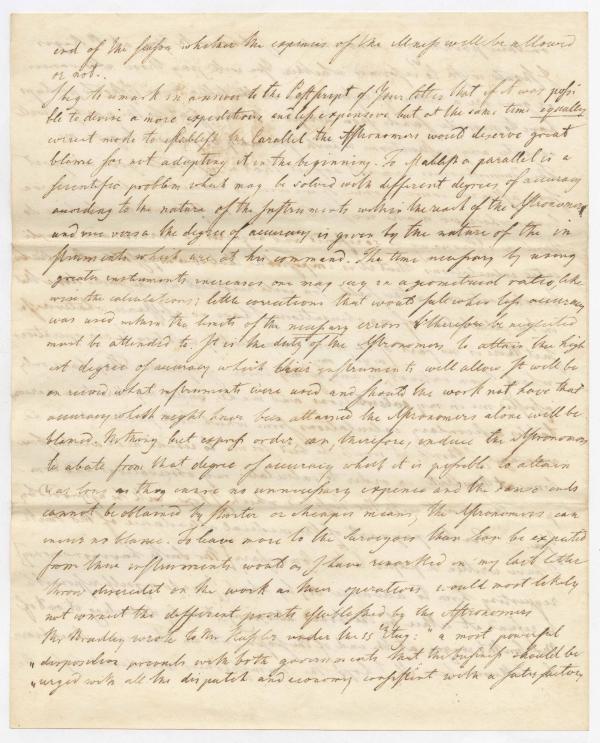 end of the season whether the expences of the illness will be allowed
or not.
I beg to remark in answer to the Postscript of Your letter that if it was possi
ble to devise a more expeditious and less expensive but at the same time equally
correct mode to establish the Parallel the Astronomers would deserve great
blame for not adopting it in the beginning. To establish a parallel is a
scientific problem which may be solved with different degrees of accuracy
according to the nature of the Instruments within the reach of the Astronomers
and vice versa the degree of accuracy is given by the nature of the in
struments which are at his command. The time necessary by using
greater instruments increases one may say in a geometrical ratio, like
wise the calculations; little corrections that would fall when less accuracy
was used within the limits of the necessary errors & therefore be neglected
must be attended to. It is the duty of the Astronomers to attain the high
est degree of accuracy which their instruments will allow It will be
what instruments were used and should the work not have that
accuracy which might have been attained the Astronomers alone will be
blamed. Nothing but express order, can, therefore, induce the Astronomers
to abate from that degree of accuracy which it is possible to attain
as long as they incur no unnecessary expence and the same ends
cannot be obtained by shorter or cheaper means, the Astronomers can
incur no blame. To leave more to the Surveyors than can be expected
from their instruments would as I have remarked in my last letter
throw discredit on the work as their operations would most likely
not connect the different points established by the Astronomers
Mr Bradley wrote to Mr Hassler under the Aug: " a most powerful
" disposition prevails with both governments that the business should be
" urged with all the dispatch and economy consistent with a satisfactory